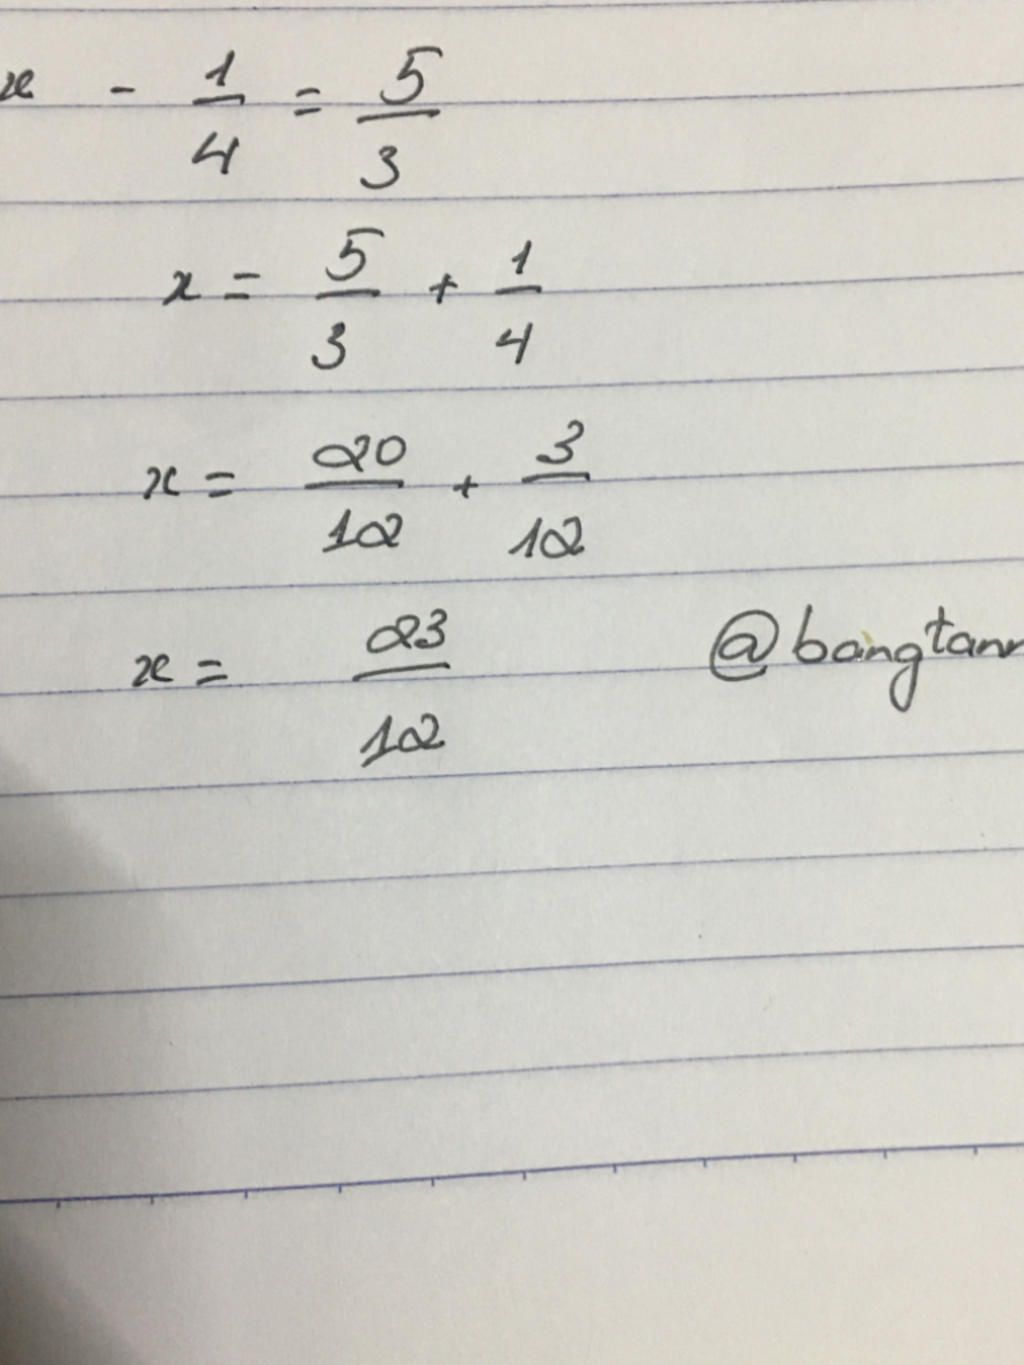 x - 1/4 = 5/3
x = 5/3 + 1/4
x = 20/12 + 3/12
x = 23/12 @bangtann